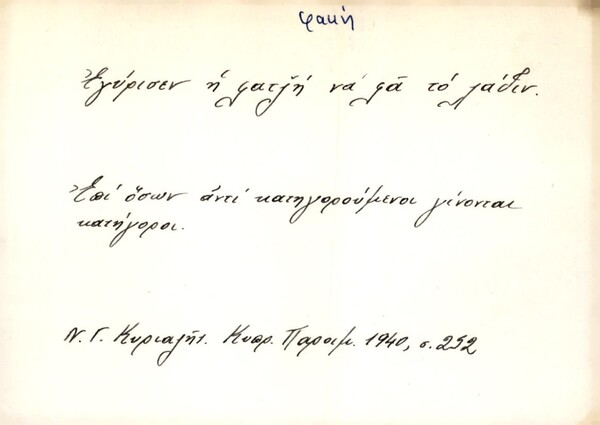 φακή
Ἐγύρισεν ἡ φατζ̌ή νά φᾶ τό λάδιν.
Ἐπί ὅσων ἀντί κατηγορούμενοι γίνονται
κατήγοροι.
Ν. Γ. Κυριαζῆς. Κυπρ. Παροιμ. 1940, σ. 252